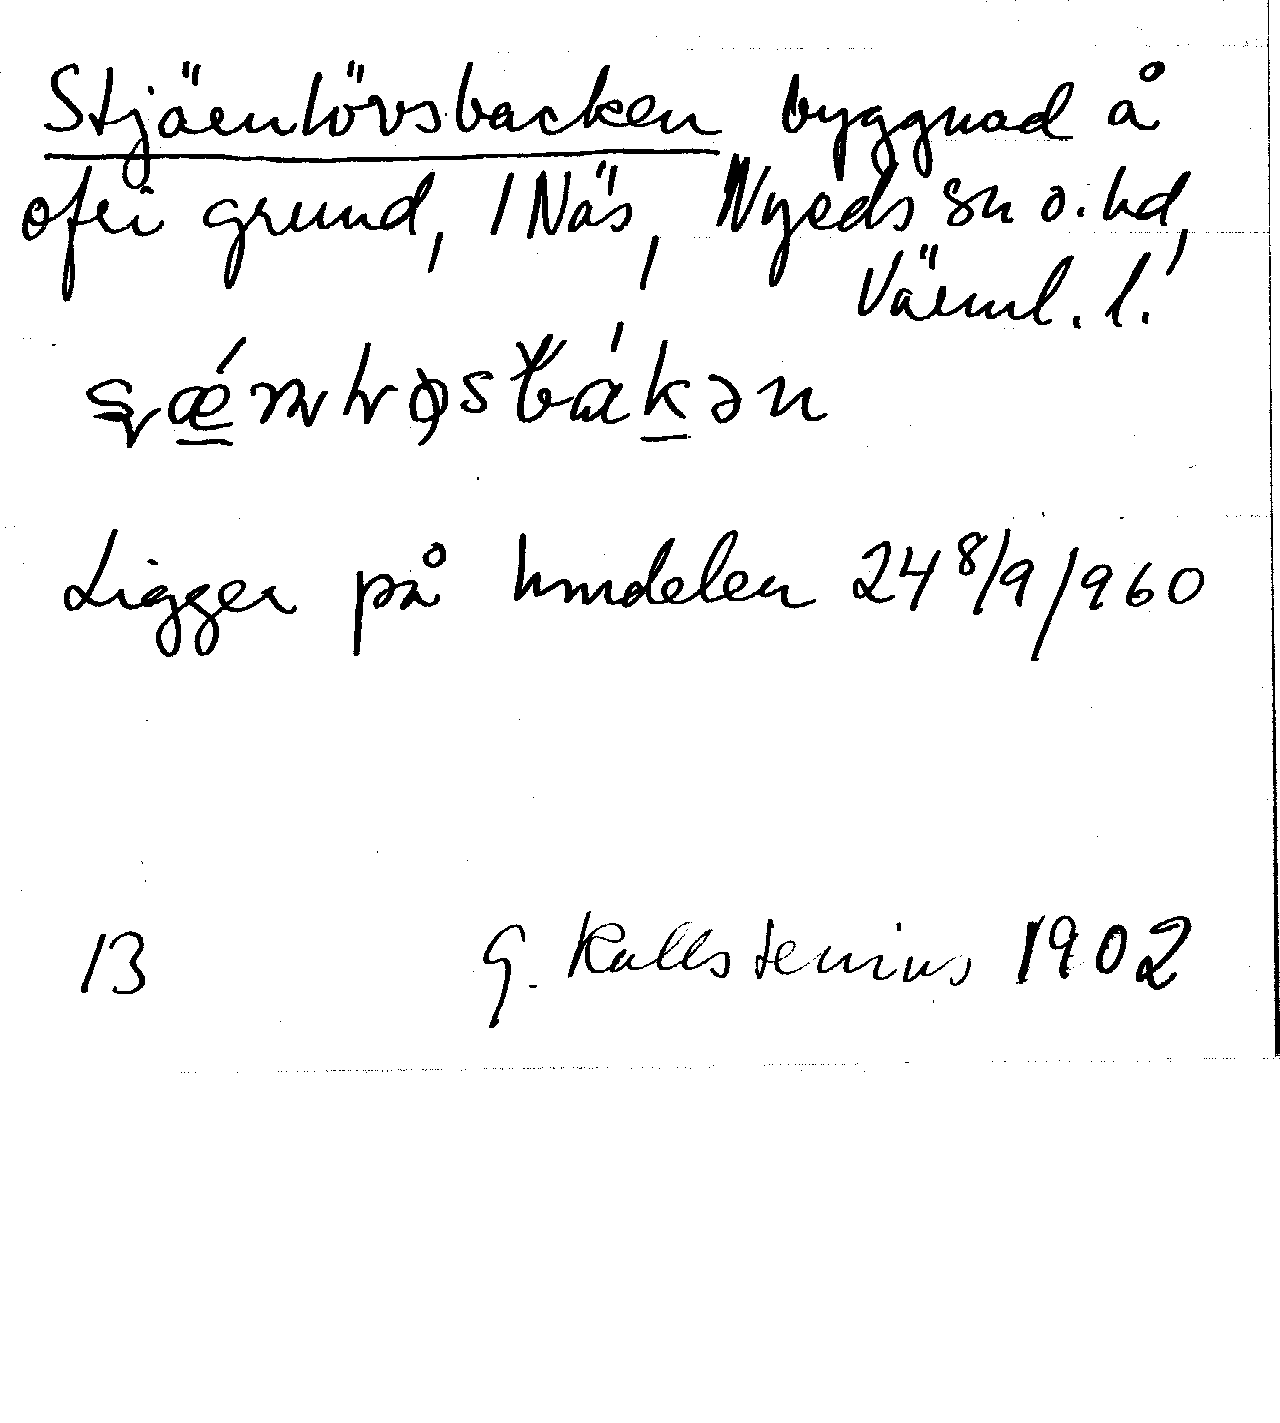 Stjärnlövsbacken byggnad å
ofri grund, 1 Näs, Nyeds sn o. hd,
Värml. l.
Ligger på hmdelen 24 8/9/960
13 G. Kallstenius 1902